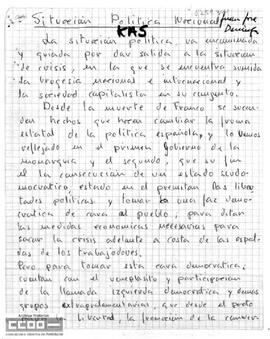 Situación Política Nacional
KAS
La situación política, va encaminada
y guiada por dar salida a la situación
de crisis, en la que se encuentra sumida
la burgesía nacional e internacional y
la sociedad capitalista en su conjunto.
Desde la muerte de Franco se suceden
hechos que hacen cambiar la forma
estatal de la política española, y lo vemos
reflejado en el primer Gobierno de la
monarquia y el segundo, que su fin
el la consecución de un estado
estado en el permitan las liber
tades políticas y tomar la una faz demo-
cratica de cara al pueblo, para dictar
las medidas economicas necesarias para
sacar la crisis adelante a costa de las espal-
das de los trabajadores.
Pero para tomar esta cara democratica,
cuentan con el complot y participacion
de la llamada izquierda democratica y demas
grupos extraparlamentarios, que desde el pacto
libertad, la promocion de la
ccoo